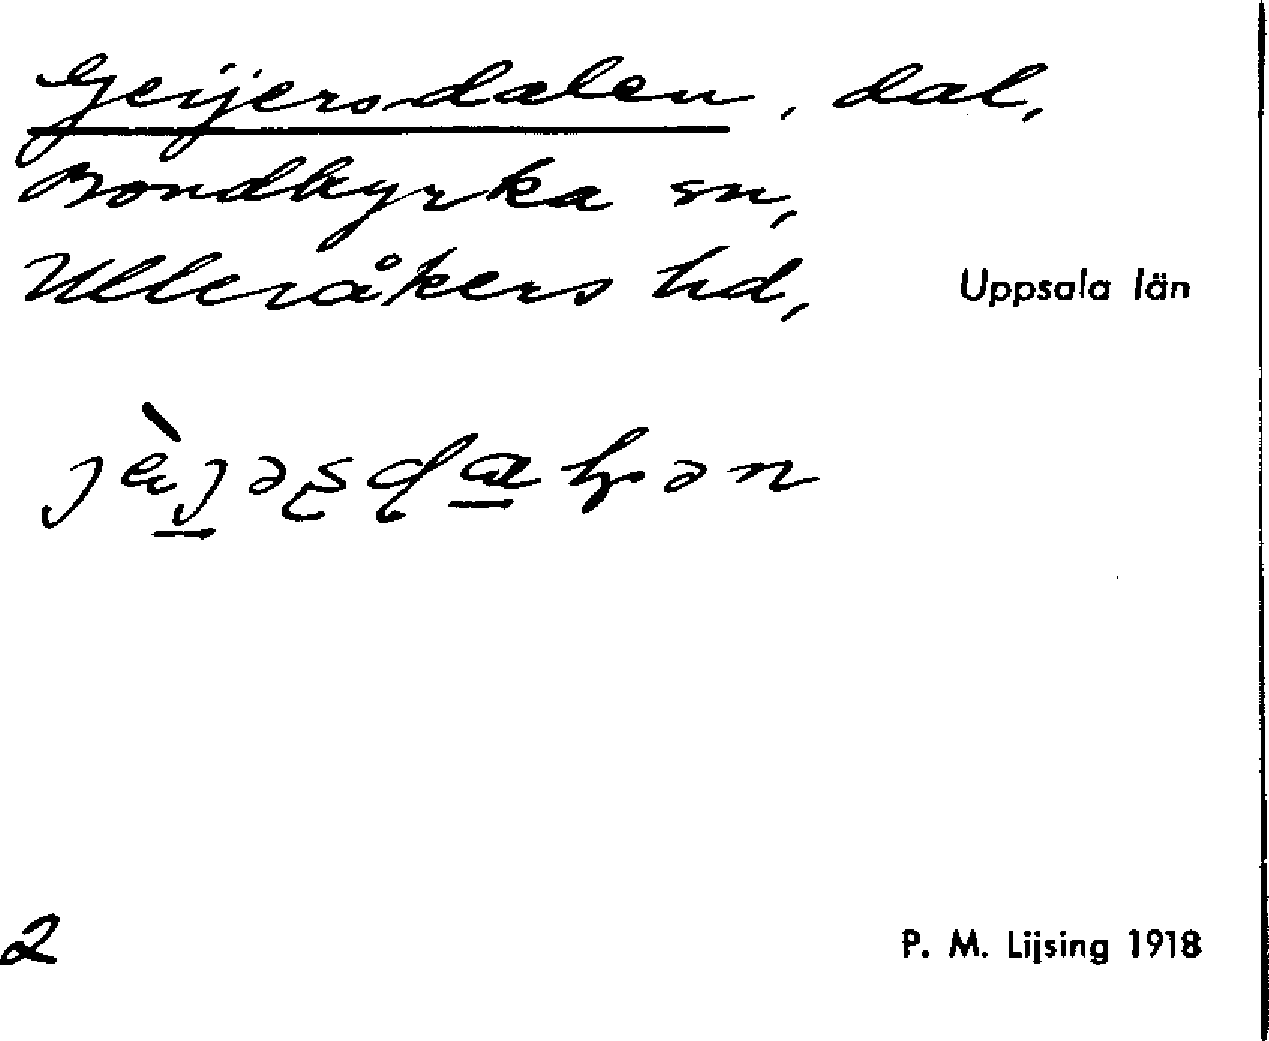 Geijersdalen, dal,
Bondkyrka sn,
Ulleråkers hd, Uppsala län
2
P. M. Lijsing 1918